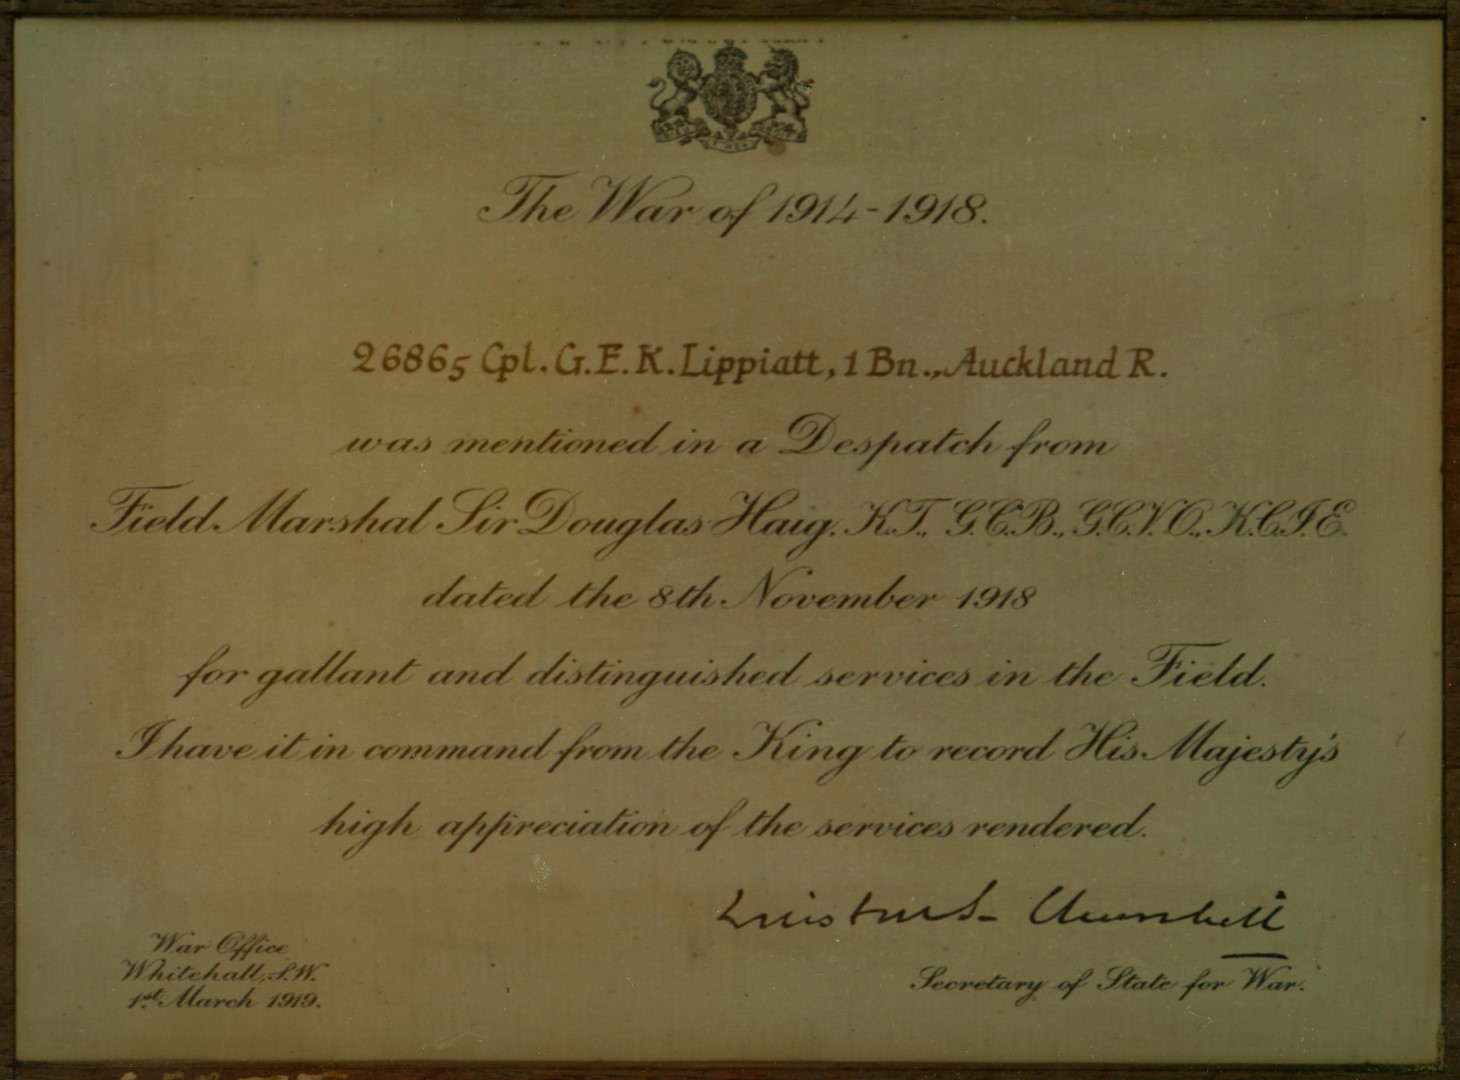 The War of 1914-1918.
26865 Cpl. G.E.K. Lippiatt, 1 Bn., Auckland R.
was mentioned in a Despatch from
Field Marshal Sir Douglas Haig. K.T., G.C.B., G.C.V.O., K.C.I.E.
dated the 8th November 1918
for gallant and distinguished services in the Field.
I have it in command from the King to record His Majesty's
high appreciation of the services rendered.
Winston S. Churchill
Secretary of State for War.
War Office
Whitehall, S.W.
1st March 1919.